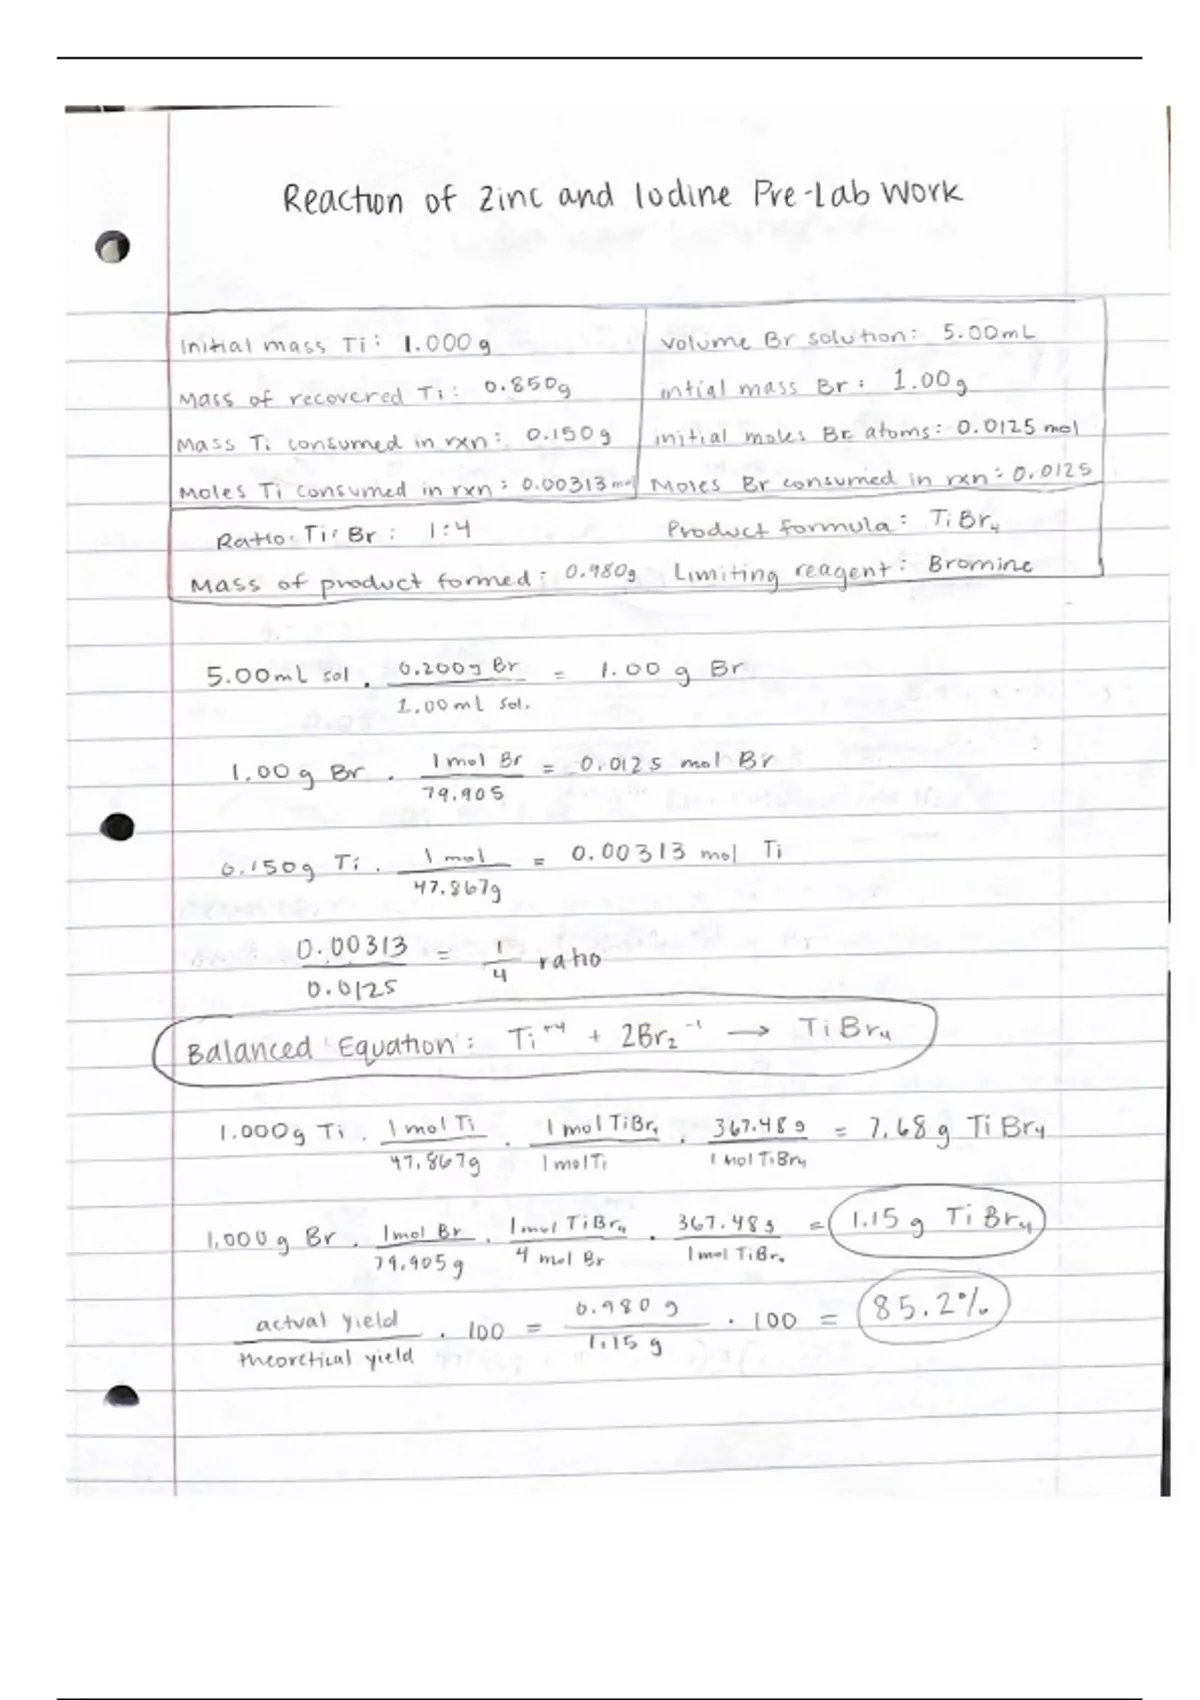 Reaction of Zinc and Iodine Pre-Lab Work
Initial mass Ti: 1.000 g
Volume Br solution: 5.00mL
Mass of recovered Ti: 0.850g
intial mass Br: 1.00g
Mass Ti consumed in rxn: 0.150g
initial moles Br atoms: 0.0125 mol
Moles Ti consumed in rxn: 0.00313 mol
Moles Br consumed in rxn: 0.0125
Ratio: Ti: Br: 1:4
Product formula: TiBr₄
Mass of product formed: 0.980g
Limiting reagent: Bromine
5.00mL sol · 0.200g Br / 1.00mL sol. = 1.00 g Br
1.00g Br · 1mol Br / 79.905 = 0.0125 mol Br
0.150g Ti · 1 mol / 47.867g = 0.00313 mol Ti
0.00313 / 0.0125 = 1/4 ratio
Balanced Equation: Ti⁺⁴ + 2Br₂⁻¹ → TiBr₄
1.000g Ti · 1 mol Ti / 47.867g · 1 mol TiBr₄ / 1 mol Ti · 367.48 g / 1 mol TiBr₄ = 7.68 g TiBr₄
1.000g Br · 1mol Br / 79.905g · 1mol TiBr₄ / 4 mol Br · 367.48g / 1mol TiBr₄ = 1.15 g TiBr₄
actual yield / theoretical yield · 100 = 0.980 g / 1.15 g · 100 = 85.2%